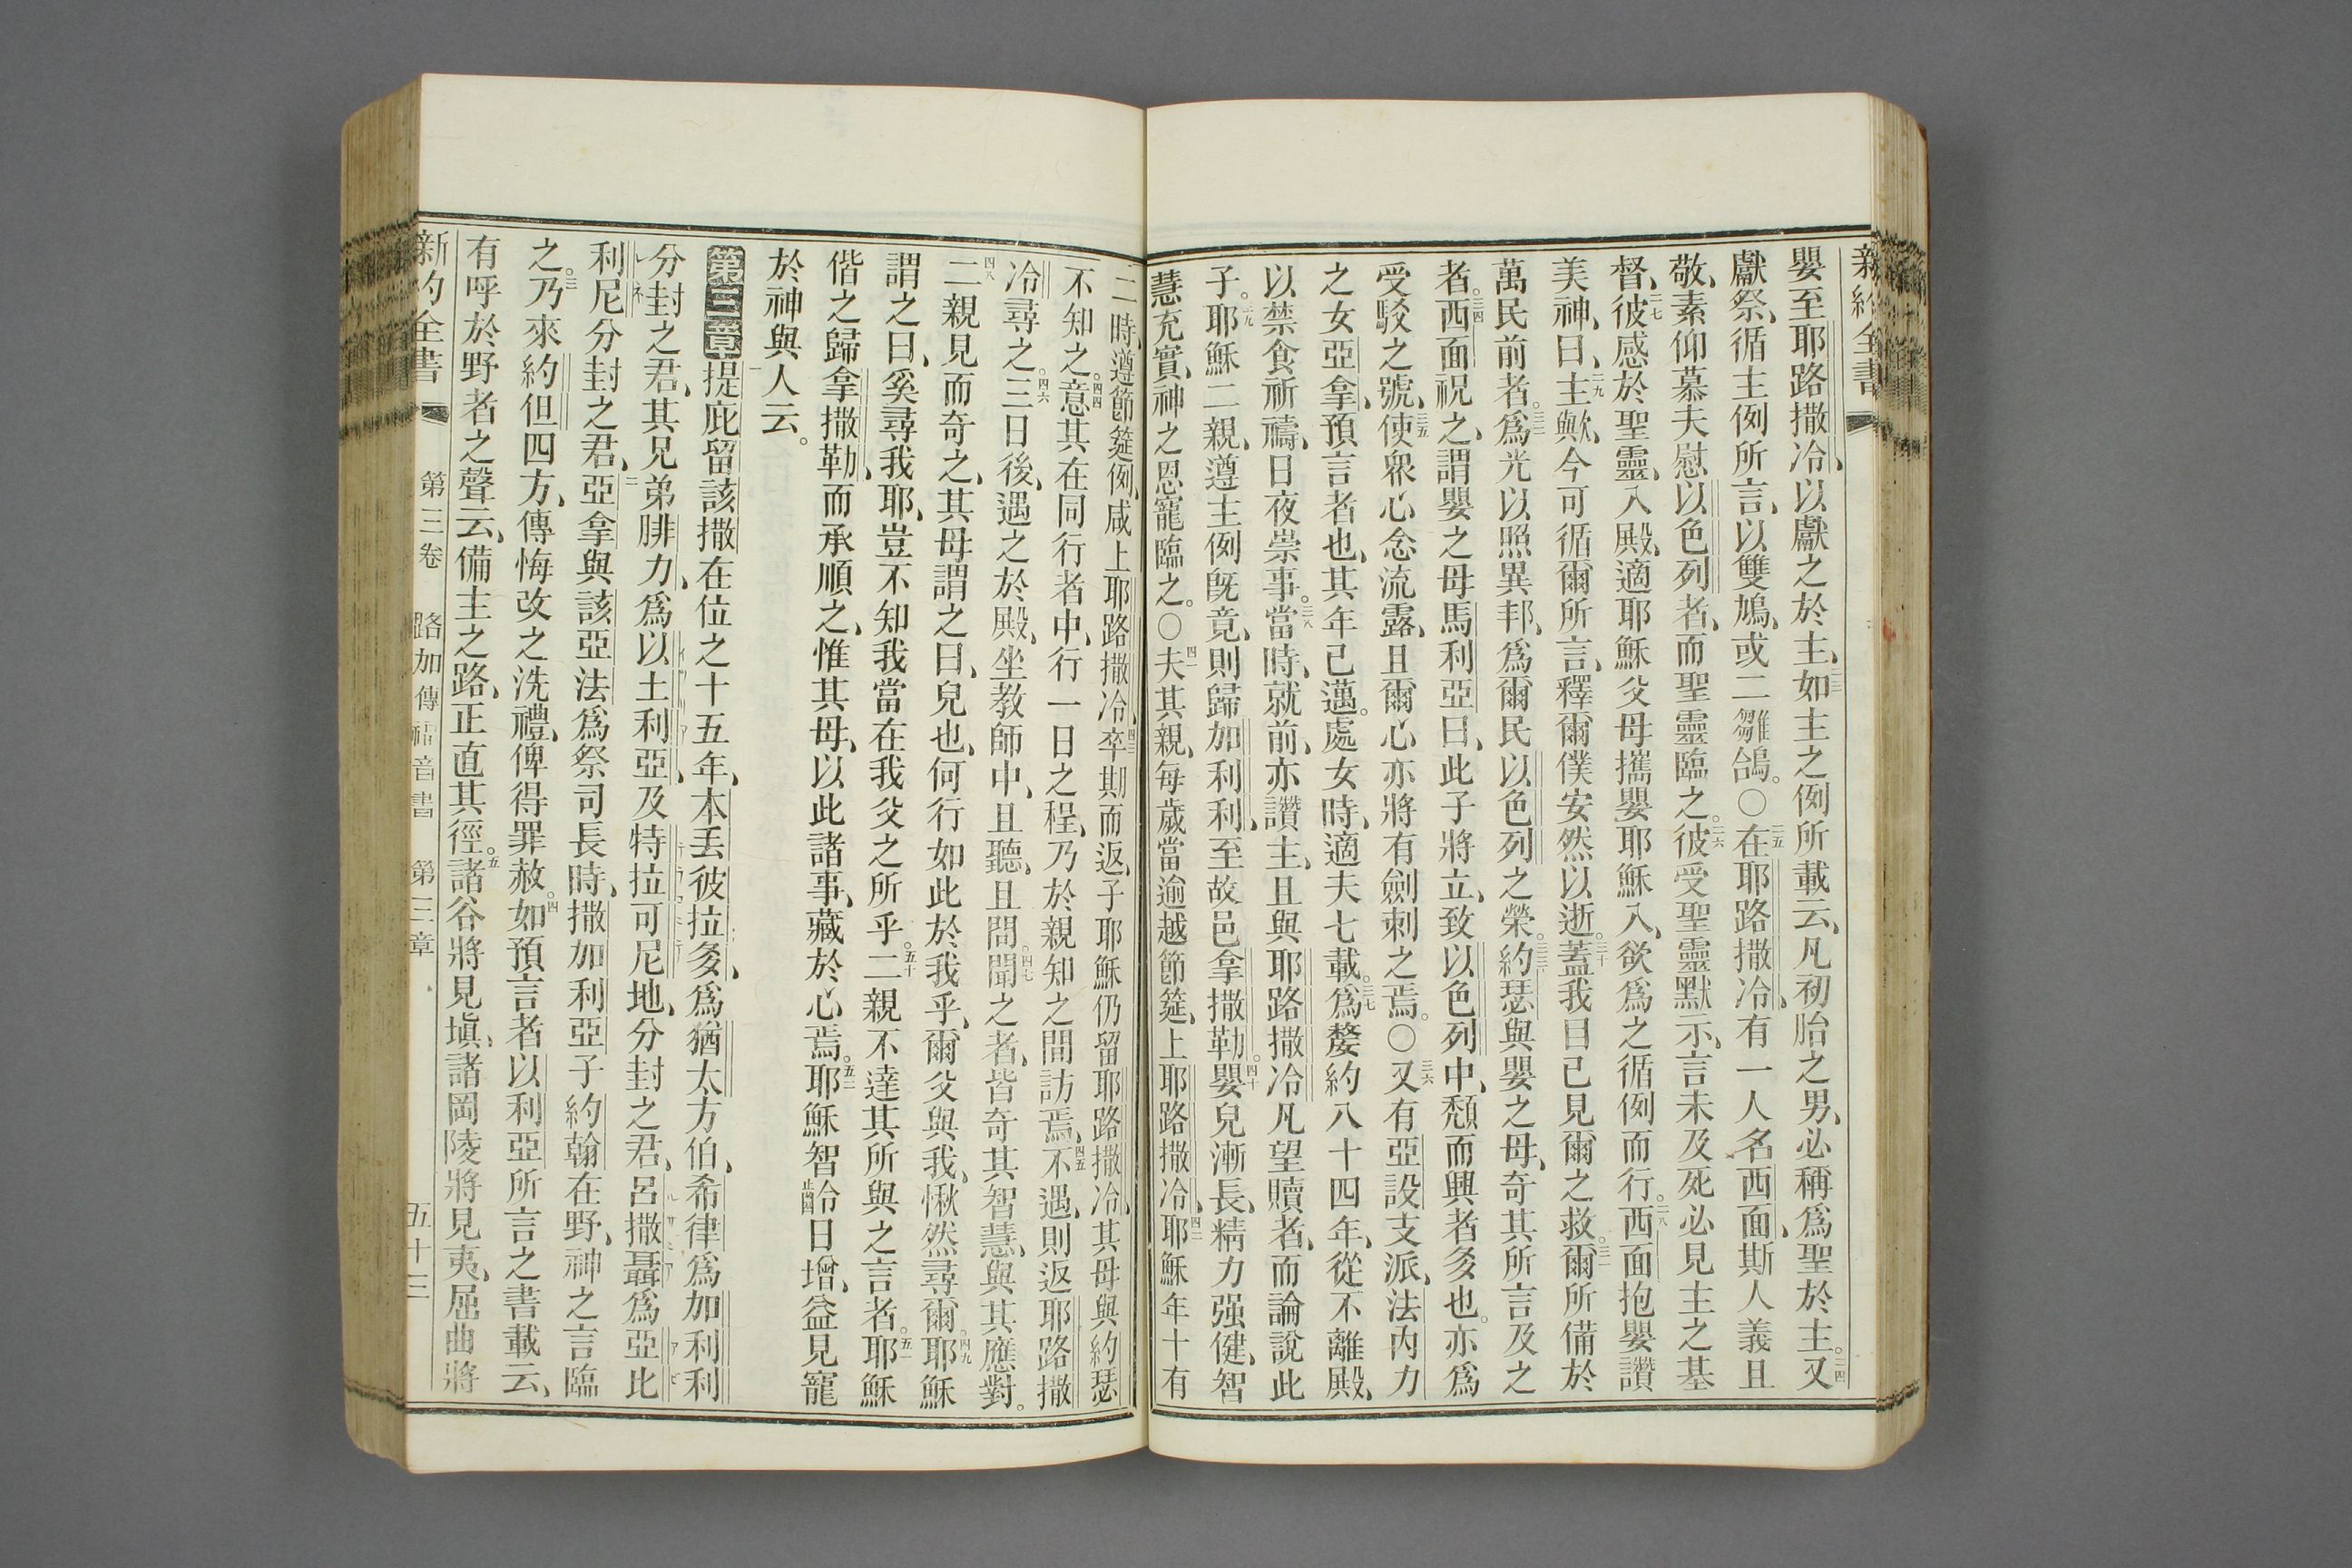 新約全書
嬰至耶路撒冷、以獻之於主、二三如主之例所載云、凡初胎之男、必稱爲聖於主。二四又
獻祭、循主例所言、以雙鳩、或二雛鴿。〇二五在耶路撒冷、有一人名西面、斯人義且
敬、素仰慕夫慰以色列者、而聖靈臨之。二六彼受聖靈默示、言未及死必見主之基
督、二七彼感於聖靈、入殿、適耶穌父母攜嬰耶穌入、欲爲之循例而行。二八西面抱嬰讚
美神、曰、二九主歟、今可循爾所言、釋爾僕安然以逝。三十蓋我目己見爾之救。三一爾所備於
萬民前者。三二爲光以照異邦、爲爾民以色列之榮。三三約瑟與嬰之母、奇其所言及之
者。三四西面祝之、謂嬰之母馬利亞曰、此子將立、致以色列中、頽而興者多也。亦爲
受駁之號、三五使衆心念流露、且爾心亦將有劍刺之焉。〇三六又有亞設支派、法內力
之女亞拿、預言者也、其年己邁。處女時、適夫七載。三七爲嫠約八十四年、從不離殿、
以禁食祈禱、日夜崇事。三八當時、就前、亦讚主、且與耶路撒冷凡望贖者、而論說此
子。三九耶穌二親、遵主例旣竟、則歸加利利、至故邑拿撒勒。四十嬰兒漸長、精力强健、智
慧充實、神之恩寵臨之。〇四一夫其親、每歲當逾越節筵、上耶路撒冷、四二耶穌年十有
二時、遵節筵例、咸上耶路撒冷、四三卒期而返、子耶穌仍留耶路撒冷、其母與約瑟
不知之。四四意其在同行者中、行一日之程、乃於親知之間訪焉、四五不遇、則返耶路撒
冷尋之。四六三日後、遇之於殿、坐教師中、且聽、且問。四七聞之者、皆奇其智慧、與其應對。
四八二親見而奇之、其母謂之曰、兒也、何行如此於我乎、爾父與我、愀然尋爾。四九耶穌
謂之曰、奚尋我耶、豈不知我當在我父之所乎。五十二親不達其所與之言者。五一耶穌
偕之歸拿撒勒、而承順之、惟其母、以此諸事、藏於心焉。五二耶穌智齡日增、益見寵
於神與人云。
第三章一提庇留該撒在位之十五年、本丢彼拉多、爲猶太方伯、希律爲加利利
分封之君、其兄弟腓力、爲以土利亞、及特拉可尼地、分封之君、呂撒聶爲亞比
利尼分封之君、二亞拿與該亞法爲祭司長時、撒加利亞子約翰在野、神之言臨
之。三乃來約但四方、傳悔改之洗禮、俾得罪赦。四如預言者以利亞所言之書載云、
有呼於野者之聲云、備主之路、正直其徑。五諸谷將見塡、諸岡陵將見夷、屈曲將
新約全書 第三卷 路加傳福音書 第三章 五十三